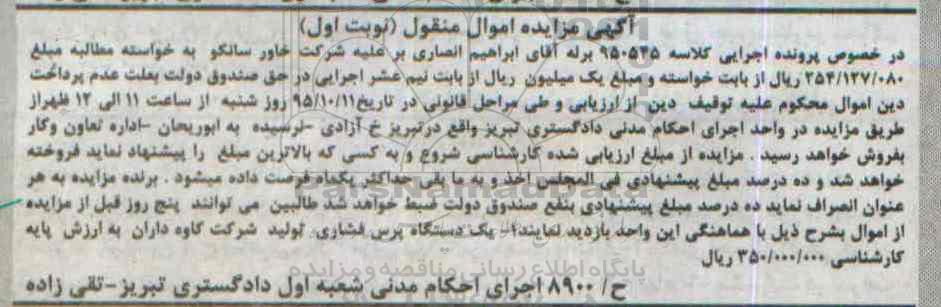 آگهی مزایده اموال منقول (نوبت اول)
در خصوص پرونده اجرایی کلاسه ۹۵۰۵۴۵ برله آقای ابراهیم انصاری بر علیه شرکت خاور سانکو به خواسته مطالبه مبلغ
۲۵۴/۱۲۷/۰۸۰ ریال از بابت خواسته و مبلغ یک میلیون ریال از بابت نیم عشر اجرایی در حق صندوق دولت بعلت عدم پرداخت
دین اموال محکوم علیه توقیف دین از ارزیابی و طی مراحل قانونی در تاریخ ۹۵/۱۰/۱۱ روز شنبه از ساعت ۱۱ الی ۱۲ ظهراز
طریق مزایده در واحد اجرای احکام مدنی دادگستری تبریز واقع درتبریز خ آزادی -نرسیده به ابوریحان -اداره تعاون وکار
بفروش خواهد رسید . مزایده از مبلغ ارزیابی شده کارشناسی شروع و به کسی که بالاترین مبلغ را پیشنهاد نماید فروخته
خواهد شد و ده درصد مبلغ پیشنهادی فی المجلس اخذ و به ما بقی حداکثر یکماه فرصت داده میشود . برنده مزایده به هر
عنوان انصراف نماید ده درصد مبلغ پیشنهادی بنفع صندوق دولت ضبط خواهد شد طالبین می توانند پنج روز قبل از مزایده
از اموال بشرح ذیل با هماهنگی این واحد بازدید نمایند۱- یک دستگاه پرس فشاری تولید شرکت کاوه داران به ارزش پایه
کارشناسی ۳۵۰/۰۰۰/۰۰۰ ریال
پایگاه اطلاع رسانی مناقصه ومزایده
ح/ ۸۹۰۰ اجرای احکام مدنی شعبه اول دادگستری تبریز-تقی زاده
ParsNamadData